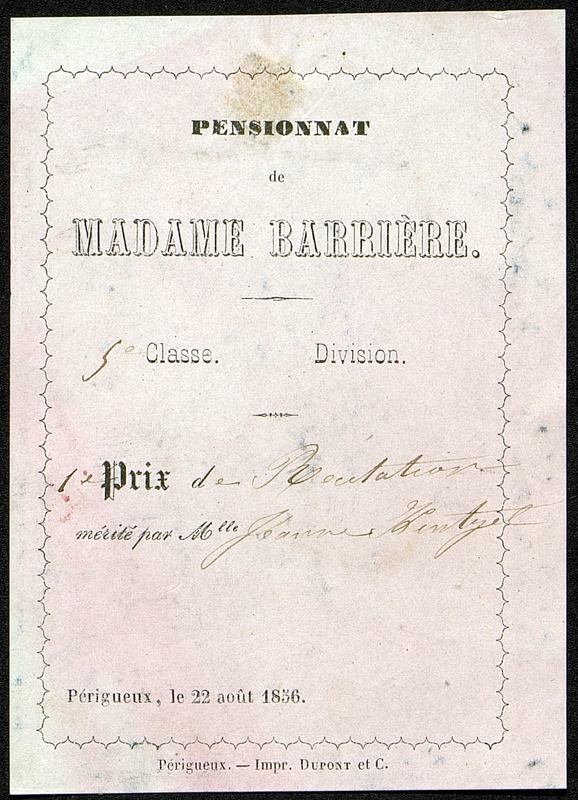 PENSIONNAT
de
MADAME BARRIÈRE.
5e Classe. Division.
1er Prix de Récitation
mérité par Mlle Jeanne
Périgueux, le 22 août 1856.
Périgueux. — Impr. DUPONT et C.